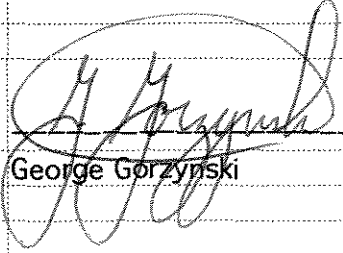 G Gorzynski
George Gorzynski